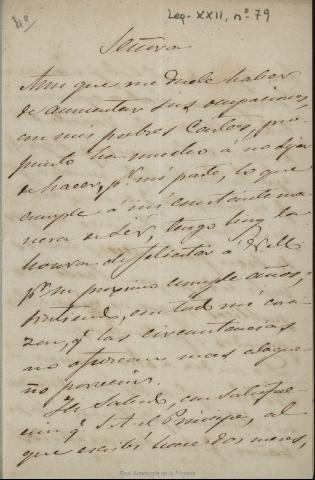 Leg. XXII, nº 79
40
Señora
Aun que me duele haber
de aumentar sus ocupaciones,
con mis pobres Cartas,
puesto ha mucho á no dejar
de hacer, pr mi parte, lo que
cumple á mi constante ma
nera de sér, tengo hoy la
honra de felicitar á V.M.
pr su proximo cumple años,
sintiendo, con todo mi cora-
zon, q. las circunstancias
no ofrezcan mas alague-
ño porvenir.
He sabido, con satisfac-
cion q. S.A. el Principe, al
que escribí hace dos meses,
Real Academia de la Historia